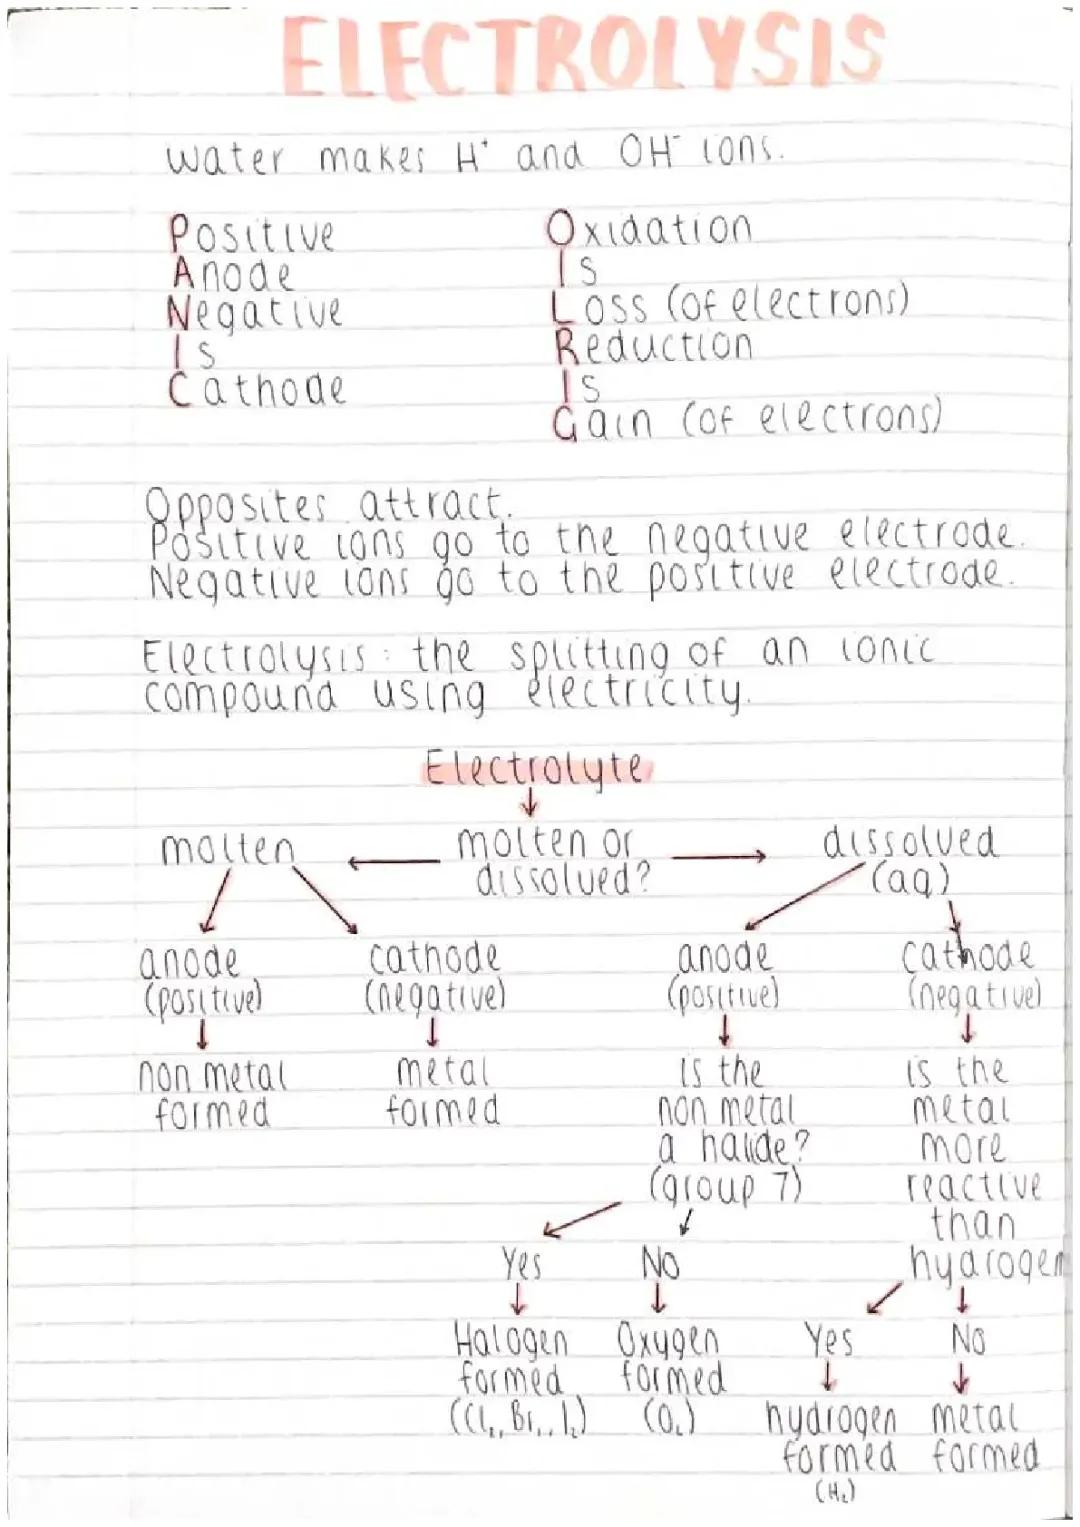 ELECTROLYSIS
Water makes H⁺ and OH⁻ ions.
Positive
Anode
Negative
Is
Cathode
Oxidation
Is
Loss (of electrons)
Reduction
Is
Gain (of electrons)
Opposites attract.
Positive ions go to the negative electrode.
Negative ions go to the positive electrode.
Electrolysis: the splitting of an ionic
compound using electricity.
Electrolyte
molten or
dissolved?
molten
anode
(positive)
non metal
formed
cathode
(negative)
metal
formed
dissolved
(aq)
anode
(positive)
is the
non metal
a halide?
(group 7)
Yes
Halogen
formed
(Cl₂, Br₂, I₂)
No
Oxygen
formed
(O₂)
cathode
(negative)
is the
metal
more
reactive
than
hydrogen
Yes
hydrogen
formed
(H₂)
No
metal
formed